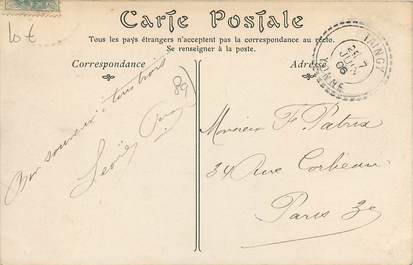 10 €
Carte Postale
Tous les pays étrangers n'acceptent pas la correspondance au recto.
Se renseigner à la poste.
Correspondance
Adresse
TAINGY
7
JUIN
06
YONNE
89
Bon souvenir à tous trois
Monsieur F. Patrix
34 Rue Corbeau
Paris Xe